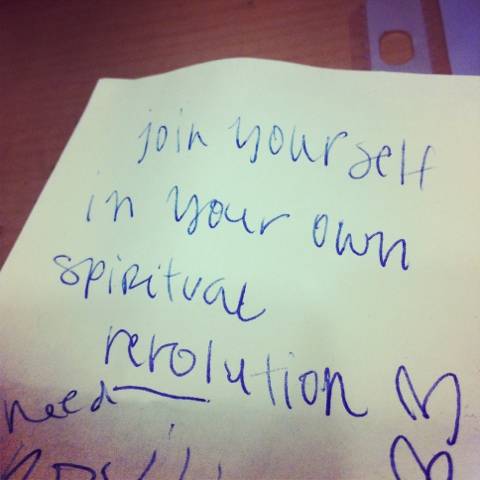 join yourself
in your own
spiritual
revolution
need